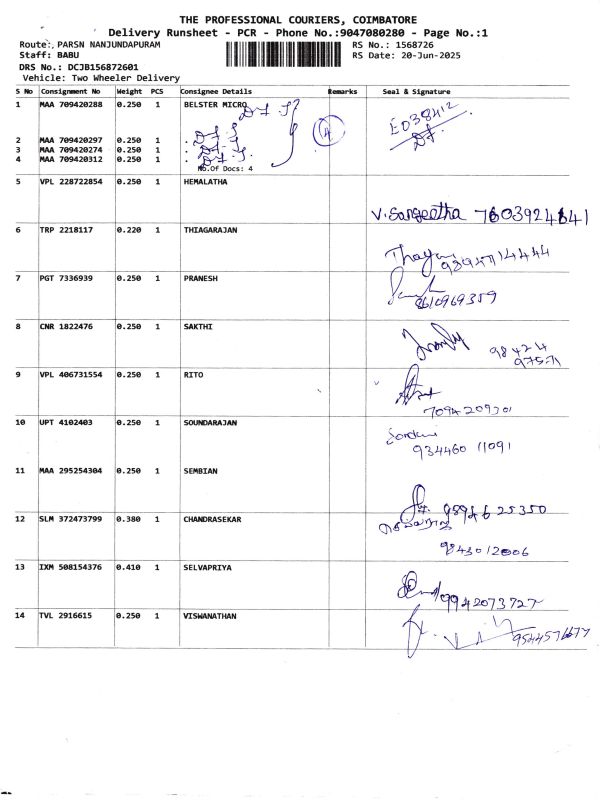 THE PROFESSIONAL COURIERS, COIMBATORE
Delivery Runsheet - PCR - Phone No.:9047080280 - Page No.:1
Route:, PARSN NANJUNDAPURAM RS No.: 1568726
Staff: BABU RS Date: 20-Jun-2025
DRS No.: DCJB156872601
Vehicle: Two Wheeler Delivery
S No Consignment No Weight PCS Consignee Details Remarks Seal & Signature
1 MAA 709420288 0.250 1 BELSTER MICRO
E038412
4
2 MAA 709420297 0.250 1
3 MAA 709420274 0.250 1
4 MAA 709420312 0.250 1
No.Of Docs: 4
5 VPL 228722854 0.250 1 HEMALATHA
V. Sangeetha
6 TRP 2218117 0.220 1 THIAGARAJAN
7 PGT 7336939 0.250 1 PRANESH
8610969359
8 CNR 1822476 0.250 1 SAKTHI
98424
97571
9 VPL 406731554 0.250 1 RITO
7094209301
10 UPT 4102403 0.250 1 SOUNDARAJAN
934460 11091
11 MAA 295254304 0.250 1 SEMBIAN
9894625350
12 SLM 372473799 0.380 1 CHANDRASEKAR
9843012006
13 IXM 508154376 0.410 1 SELVAPRIYA
9942073727
14 TVL 2916615 0.250 1 VISWANATHAN
9544576677